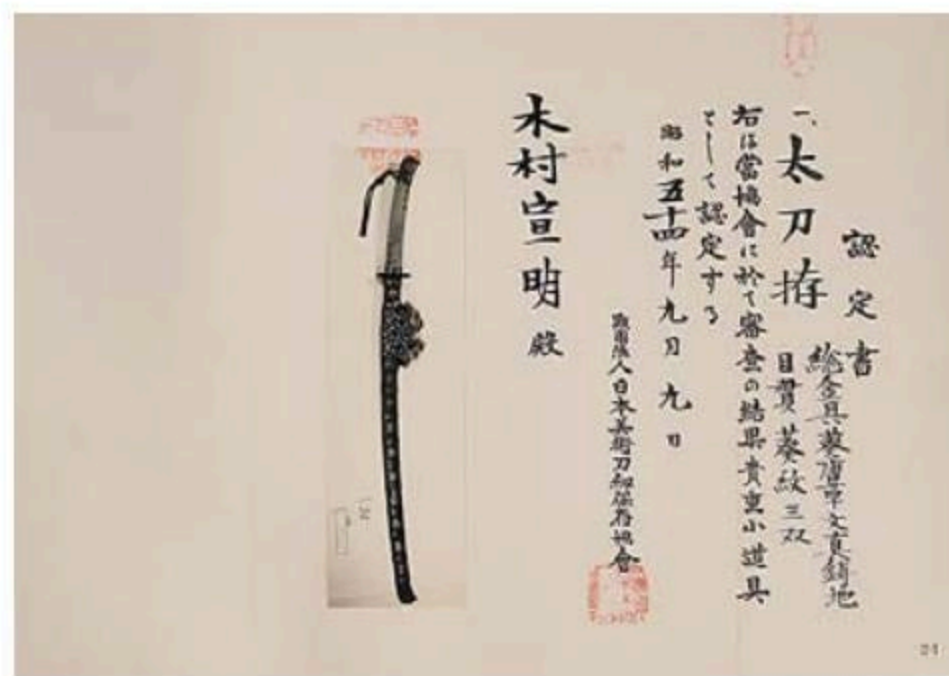 認定書
一、太刀拵
総金具葵唐草文真鍮地
目貫葵紋三双
右は當協會に於て審査の結果貴重小道具
として認定する
昭和五十四年九月九日
財団法人日本美術刀剣保存協會
木村宣明殿
24